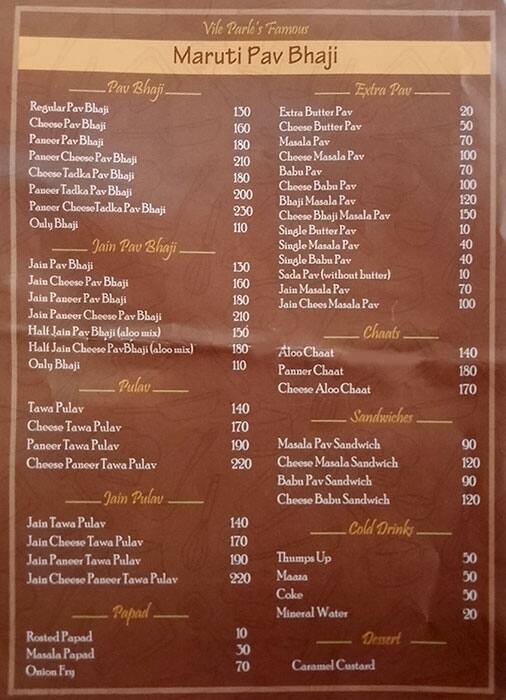 Vile Parle's Famous
Maruti Pav Bhaji
Pav Bhaji
Regular Pav Bhaji 130
Cheese Pav Bhaji 160
Paneer Pav Bhaji 180
Paneer Cheese Pav Bhaji 210
Cheese Tadka Pav Bhaji 180
Paneer Tadka Pav Bhaji 200
Paneer CheeseTadka Pav Bhaji 230
Only Bhaji 110
Jain Pav Bhaji
Jain Pav Bhaji 130
Jain Cheese Pav Bhaji 160
Jain Paneer Pav Bhaji 180
Jain Paneer Cheese Pav Bhaji 210
Half Jain Pav Bhaji (aloo mix) 150
Half Jain Cheese PavBhaji (aloo mix) 180
Only Bhaji 110
Pulav
Tawa Pulav 140
Cheese Tawa Pulav 170
Paneer Tawa Pulav 190
Cheese Paneer Tawa Pulav 220
Jain Pulav
Jain Tawa Pulav 140
Jain Cheese Tawa Pulav 170
Jain Paneer Tawa Pulav 190
Jain Cheese Paneer Tawa Pulav 220
Papad
Rosted Papad 10
Masala Papad 30
Onion Fry 70
Extra Pav
Extra Butter Pav 20
Cheese Butter Pav 50
Masala Pav 70
Cheese Masala Pav 100
Babu Pav 70
Cheese Babu Pav 100
Bhaji Masala Pav 120
Cheese Bhaji Masala Pav 150
Single Butter Pav 10
Single Masala Pav 40
Single Babu Pav 40
Sada Pav (without butter) 10
Jain Masala Pav 70
Jain Chees Masala Pav 100
Chaats
Aloo Chaat 140
Panner Chaat 180
Cheese Aloo Chaat 170
Sandwiches
Masala Pav Sandwich 90
Cheese Masala Sandwich 120
Babu Pav Sandwich 90
Cheese Babu Sandwich 120
Cold Drinks
Thumps Up 50
Maaza 50
Coke 50
Mineral Water 20
Dessert
Caramel Custard